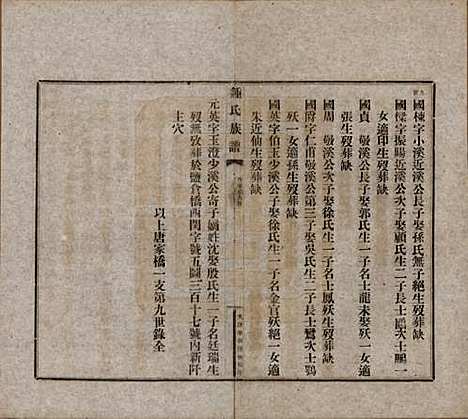 國棟字小溪近溪公長子娶孫氏無子絕生歿葬缺
國樑字振賜近溪公次子娶顧氏生二子長士鵬次士鵬一
女適印生歿葬缺
國貞 敬溪公長子娶郭氏生一子名士龍未娶歿一女適
張生歿葬缺
國周 敬溪公次子娶徐氏生一子名士鳳歿生歿葬缺
國爵字仁甫敬溪公第三子娶吳氏生二子長士鸞次士鶚
歿一女適孫生歿葬缺
國英字伯玉少溪公子娶徐氏生一子名金官歿絕一女適
朱近仙生歿葬缺
鍾氏族譜
元英字玉澄少溪公寄子嫡姓沈娶殷氏生一子名廷瑞生
歿無攷葬於鹽倉橋西閏字號五圖三百十七號內新阡
主穴
以上唐家橋一支第九世錄全